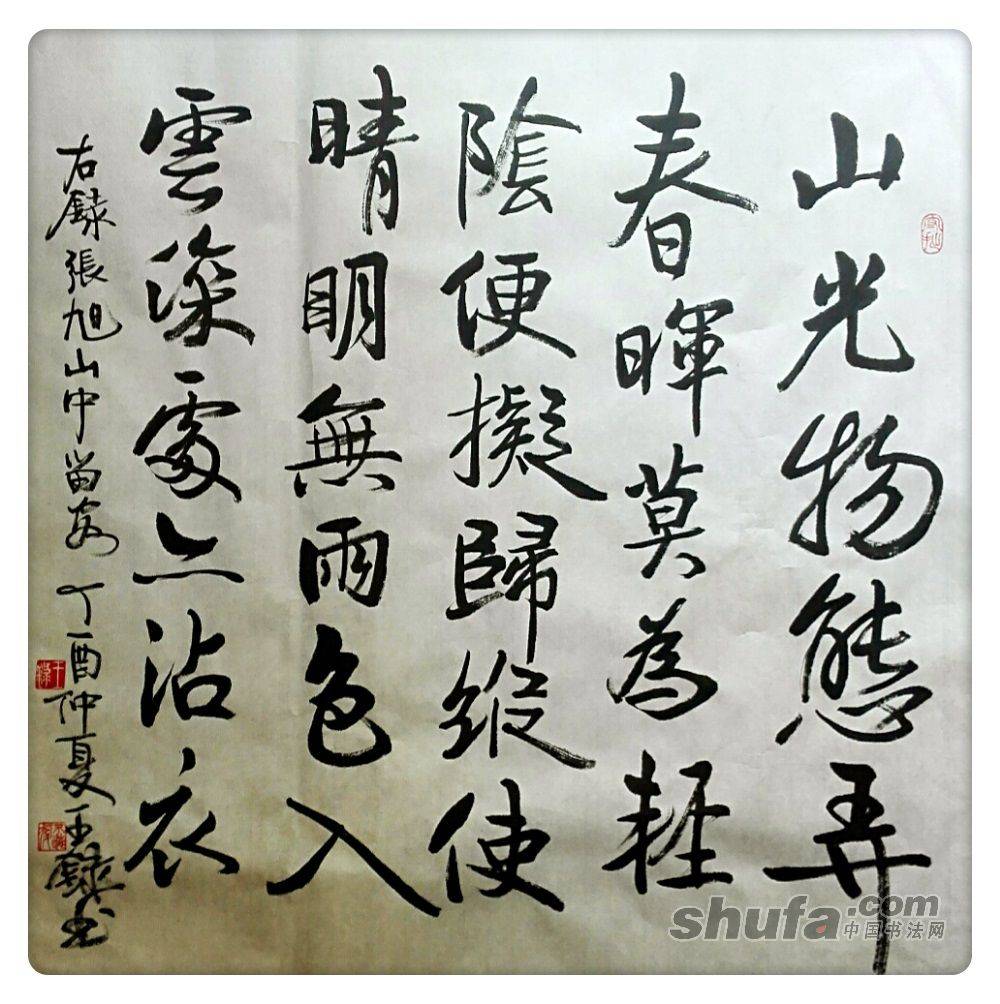 山光物態弄
春暉莫為輕
陰便擬歸縱使
晴明無雨色入
雲深處亦沾衣
右録張旭山中留客 丁酉仲夏王録书
shufa.com
中国书法网